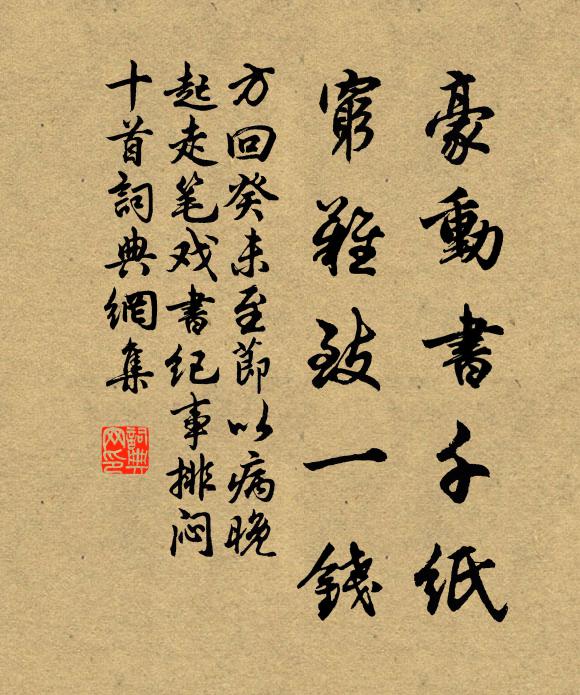 豪動書千紙
窮難致一錢
方回癸未至節以病晚
起走笔戏書纪事排闷
十首詞典網集
詞典
网印